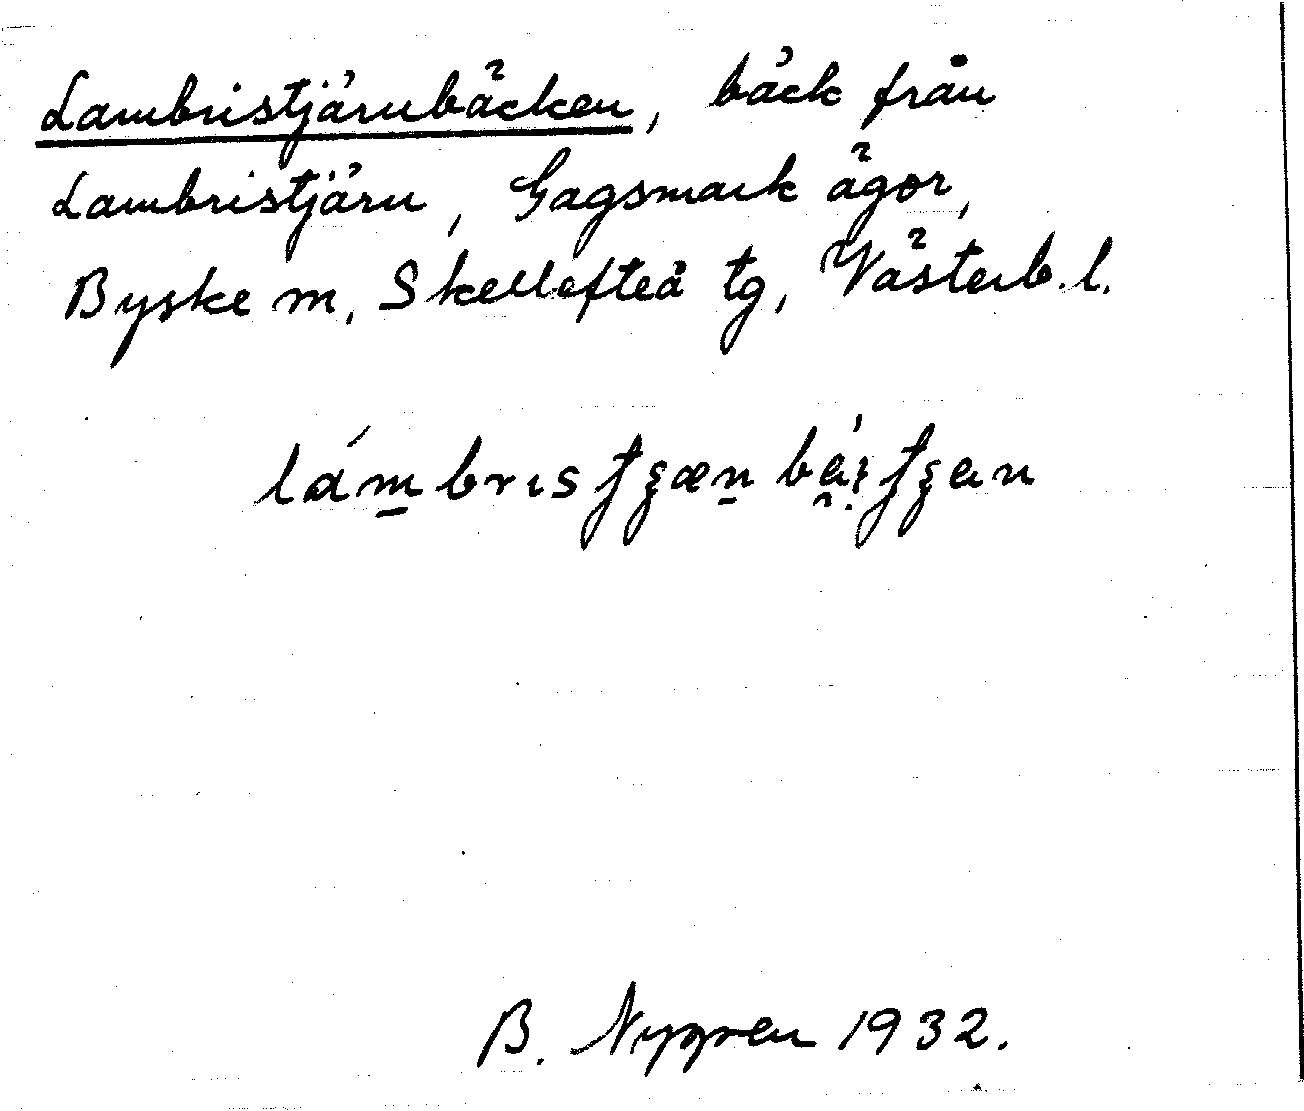 Lambristjärnbäcken, bäck från
Lambristjärn, Gagsmark ägor,
Byske sn, Skellefteå tg, Västerb. l.
B. Nygren 1932.